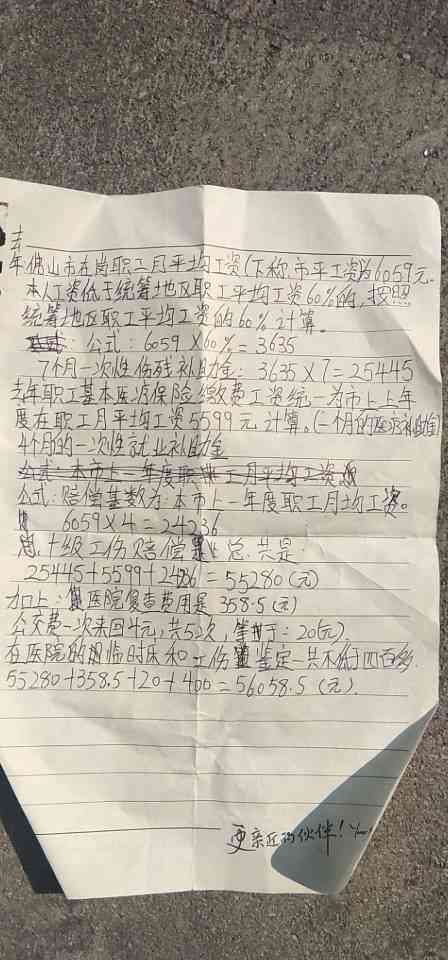 去
年佛山市在岗职工月平均工资(下称市平工资)为6059元.
本人工资低于统筹地区职工平均工资60%的,按照
统筹地区职工平均工资的60%计算。
公式: 6059×60%=3635
7个月一次性伤残补助金: 3635×7=25445
去年职工基本医疗保险缴费工资统一为市上上年
度在职工月平均工资5599元计算。(一个月的医疗补助金)
4个月的一次性就业补助金
公式:本市上一年度职工月平均工资
公式:赔偿基数为:本市上一年度职工月均工资。
6059×4=24236
总:十级工伤赔偿总共是:
25445+5599+24236=55280(元)
加上:医院复查费用是358.5(元)
公交费一次来回4元,共5次,等于:20(元).
在医院的临时床和工伤鉴定一共不低于四百多.
55280+358.5+20+400=56058.5(元).
更亲近的伙伴!